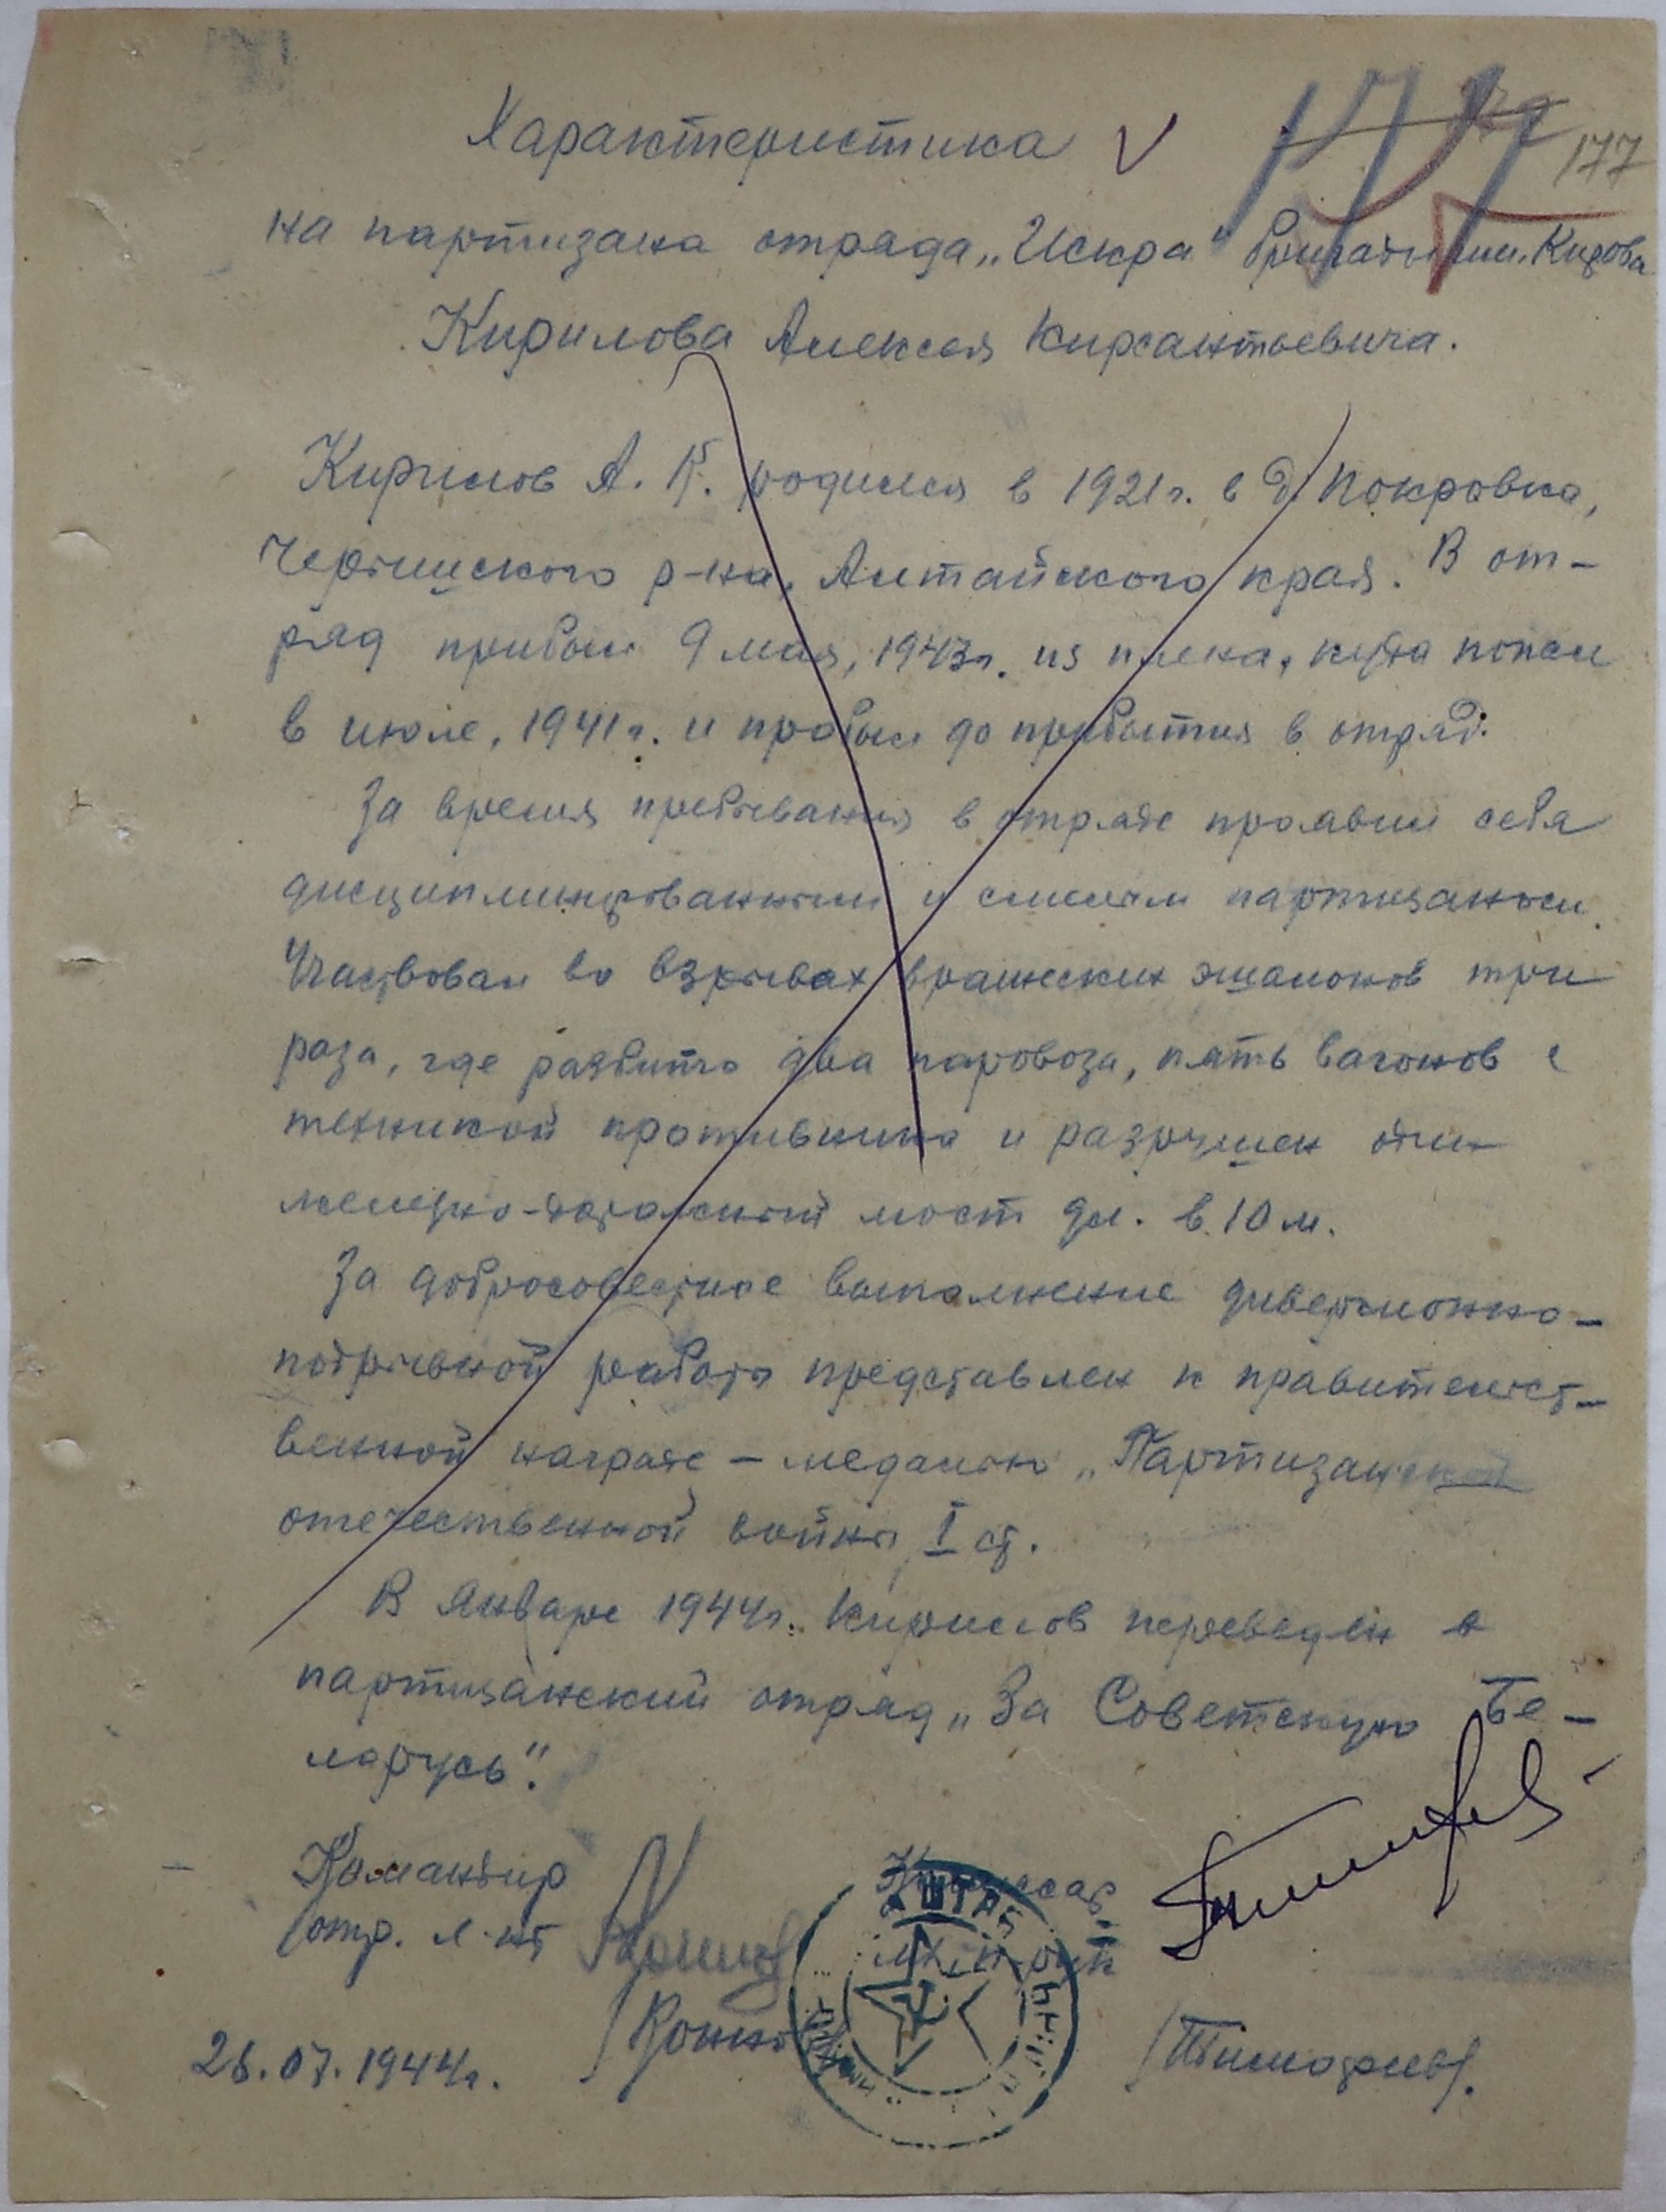 Характеристика
177
на партизана отряда „Искра" бригады им. Кирова
Кирилова Алексея Кирсантьевича.
Кирилов А. К. родился в 1921г. в д. Покровка,
р-на, Алтайского края. В от-
ряд прибыл 9 мая, 1943г. из плена, куда попал
в июле, 1941г. и пробыл до прибытия в отряд.
За время пребывания в отряде проявил себя
дисциплинированным и смелым партизаном.
Участвовал во взрывах вражеских эшалонов три
раза, где разбито два паровоза, пять вагонов с
техникой противника и разрушен один
железно-дорожный мост дл. в 10 м.
За добросовестное выполнение диверсионно-
подрывной работы представлен к правительст-
венной награде – медалью „Партизанской
отечественной войны I ст.
В январе 1944г. Кирилов переведен в
партизанский отряд „За Советскую Бе-
ларусь".
Командир
Комиссар
отр. л-нт
мл. п-рук
ШТАБ
26.07.1944г.
/Тимофеев/.